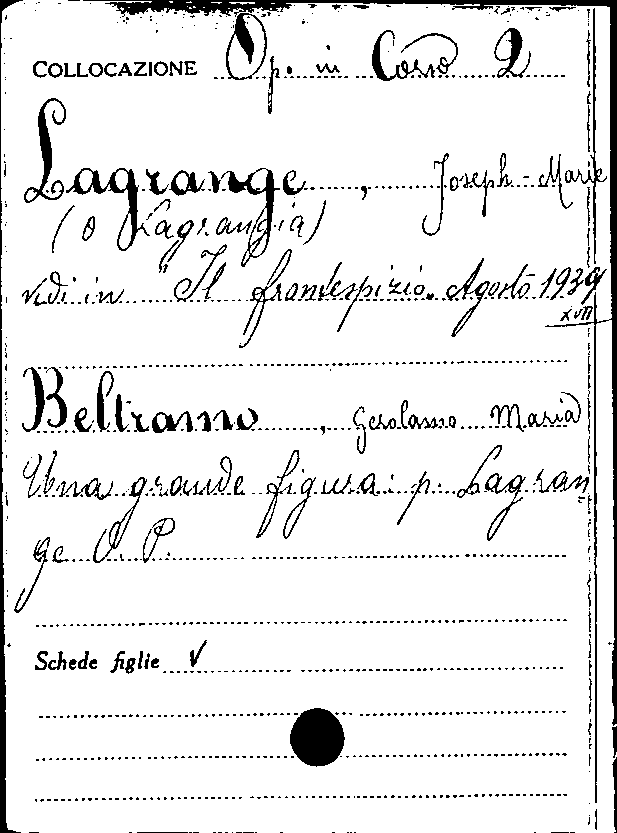 COLLOCAZIONE Op. in Corso 2
Lagrange, Joseph-Marie
(o Lagrangia)
vedi in "Il frontespizio. Agosto 1939
XVII
Beltramo, Gerolamo Maria
Una grande figura: p. Lagran
ge O. P.
Schede figlie V